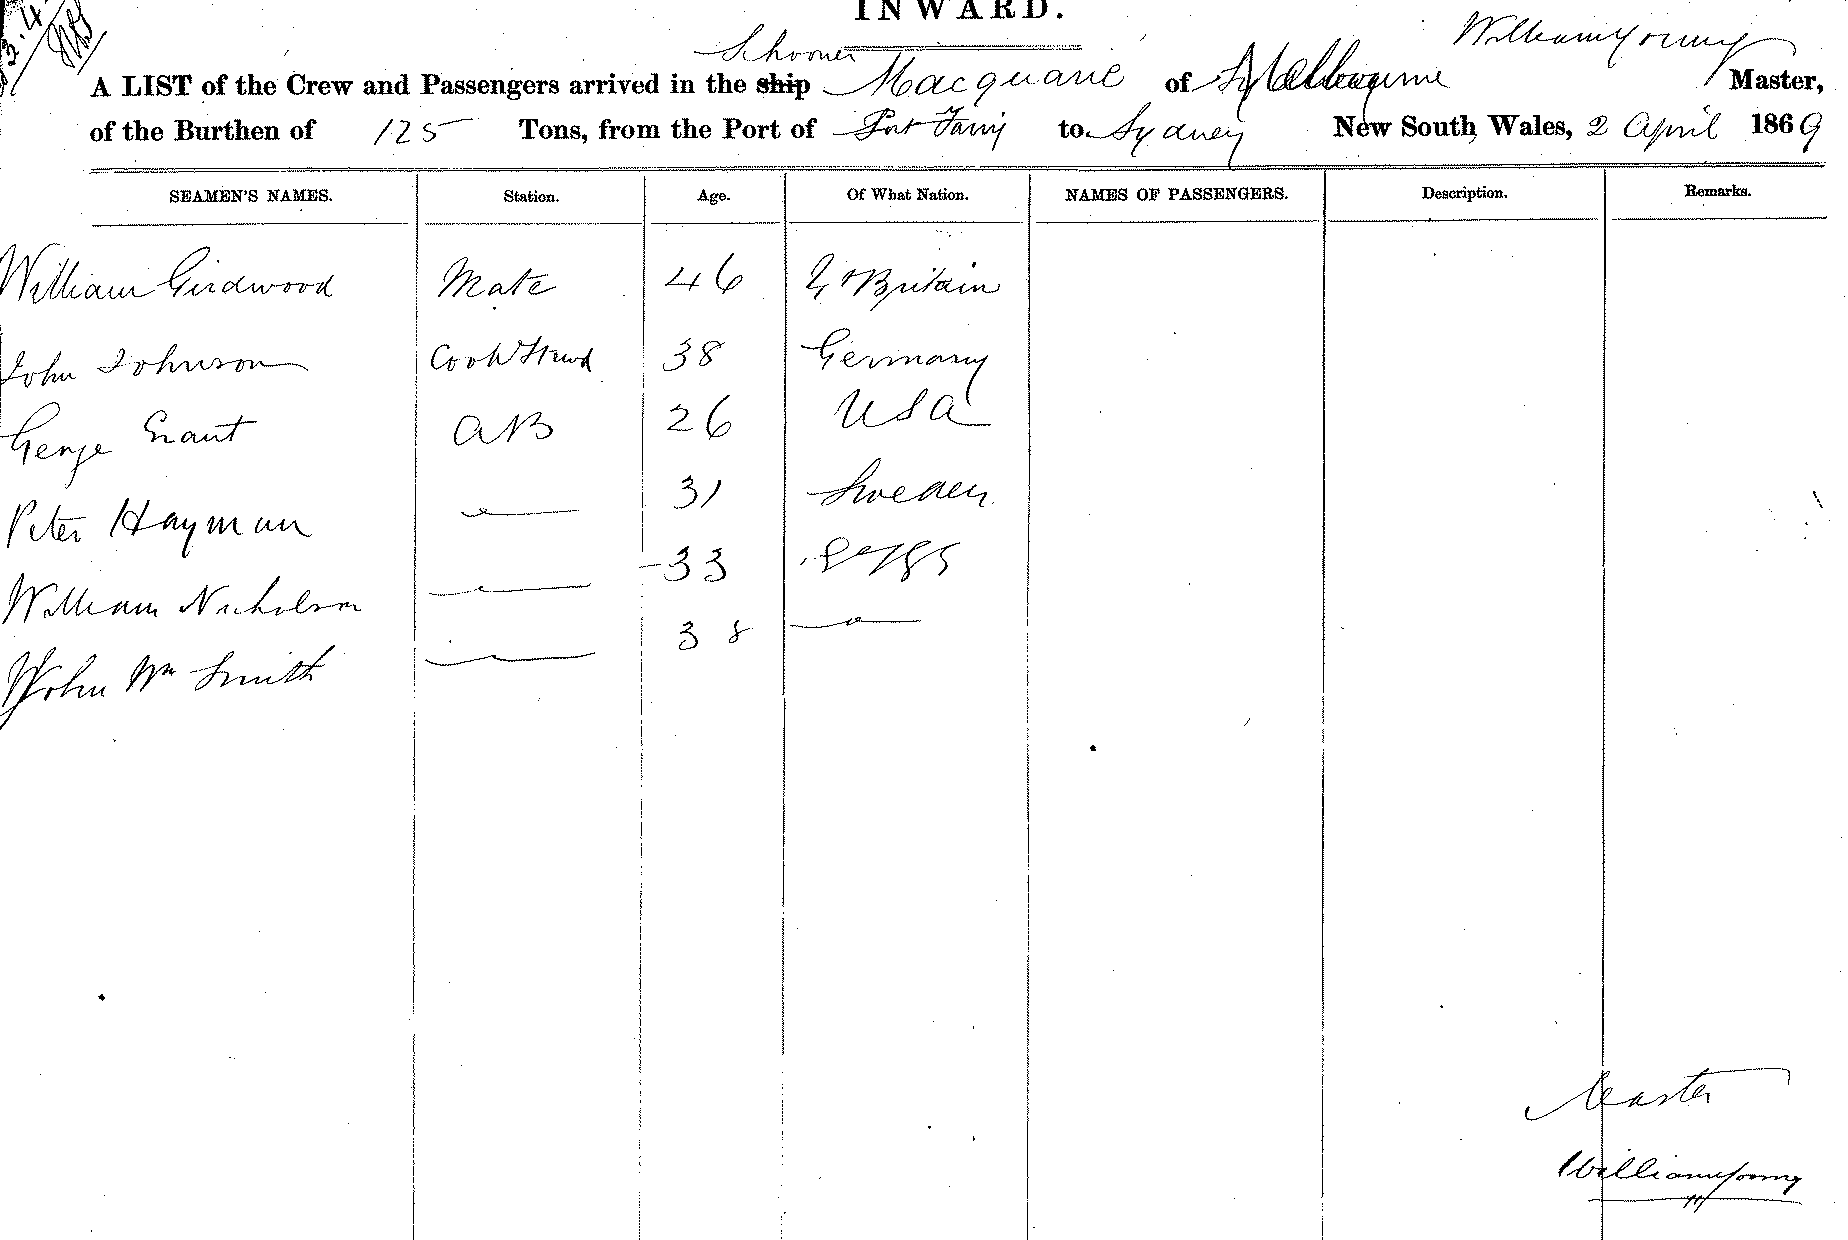 INWARD.
Schooner
William Young
A LIST of the Crew and Passengers arrived in the ship Macquarie of Melbourne Master,
of the Burthen of 125 Tons, from the Port of Port Fairy to Sydney New South Wales, 2 April 1869
SEAMEN'S NAMES. Station. Age. Of What Nation. NAMES OF PASSENGERS. Description. Remarks.
William Girdwood Mate 46 Gt Britain
John Johnson Cook & Stewd 38 Germany
George Grant AB 26 USA
Peter Hayman 31 Sweden
William Nicholson 33
John Wm Smith 38
Master
William Young